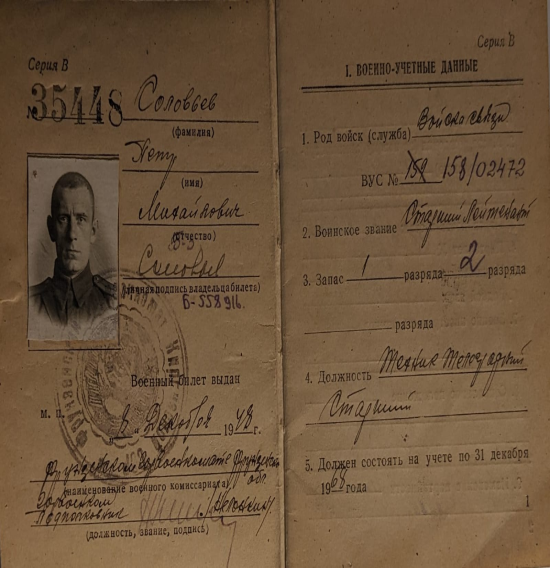 Серия В
№35448
Соловьев
(фамилия)
Петр
(имя)
Михайлович
(отчество)
(личная подпись владельца билета)
Б-558916.
Военный билет выдан
М. П.
"8" Декабря 1948 г.
Фрунзенском Горвоенкомате Фрунзенской
обл.
(наименование военного комиссариата)
Горвоенком
Подполковник
(должность, звание, подпись)
Серия В
I. ВОЕННО-УЧЕТНЫЕ ДАННЫЕ
1. Род войск (служба) Войска связи
ВУС № 159 158/02472
2. Воинское звание Старший Лейтенант
3. Запас 1 разряда 2 разряда
разряда
4. Должность Техник Телеграфный
Старший
5. Должен состоять на учете по 31 декабря
1968 года
1